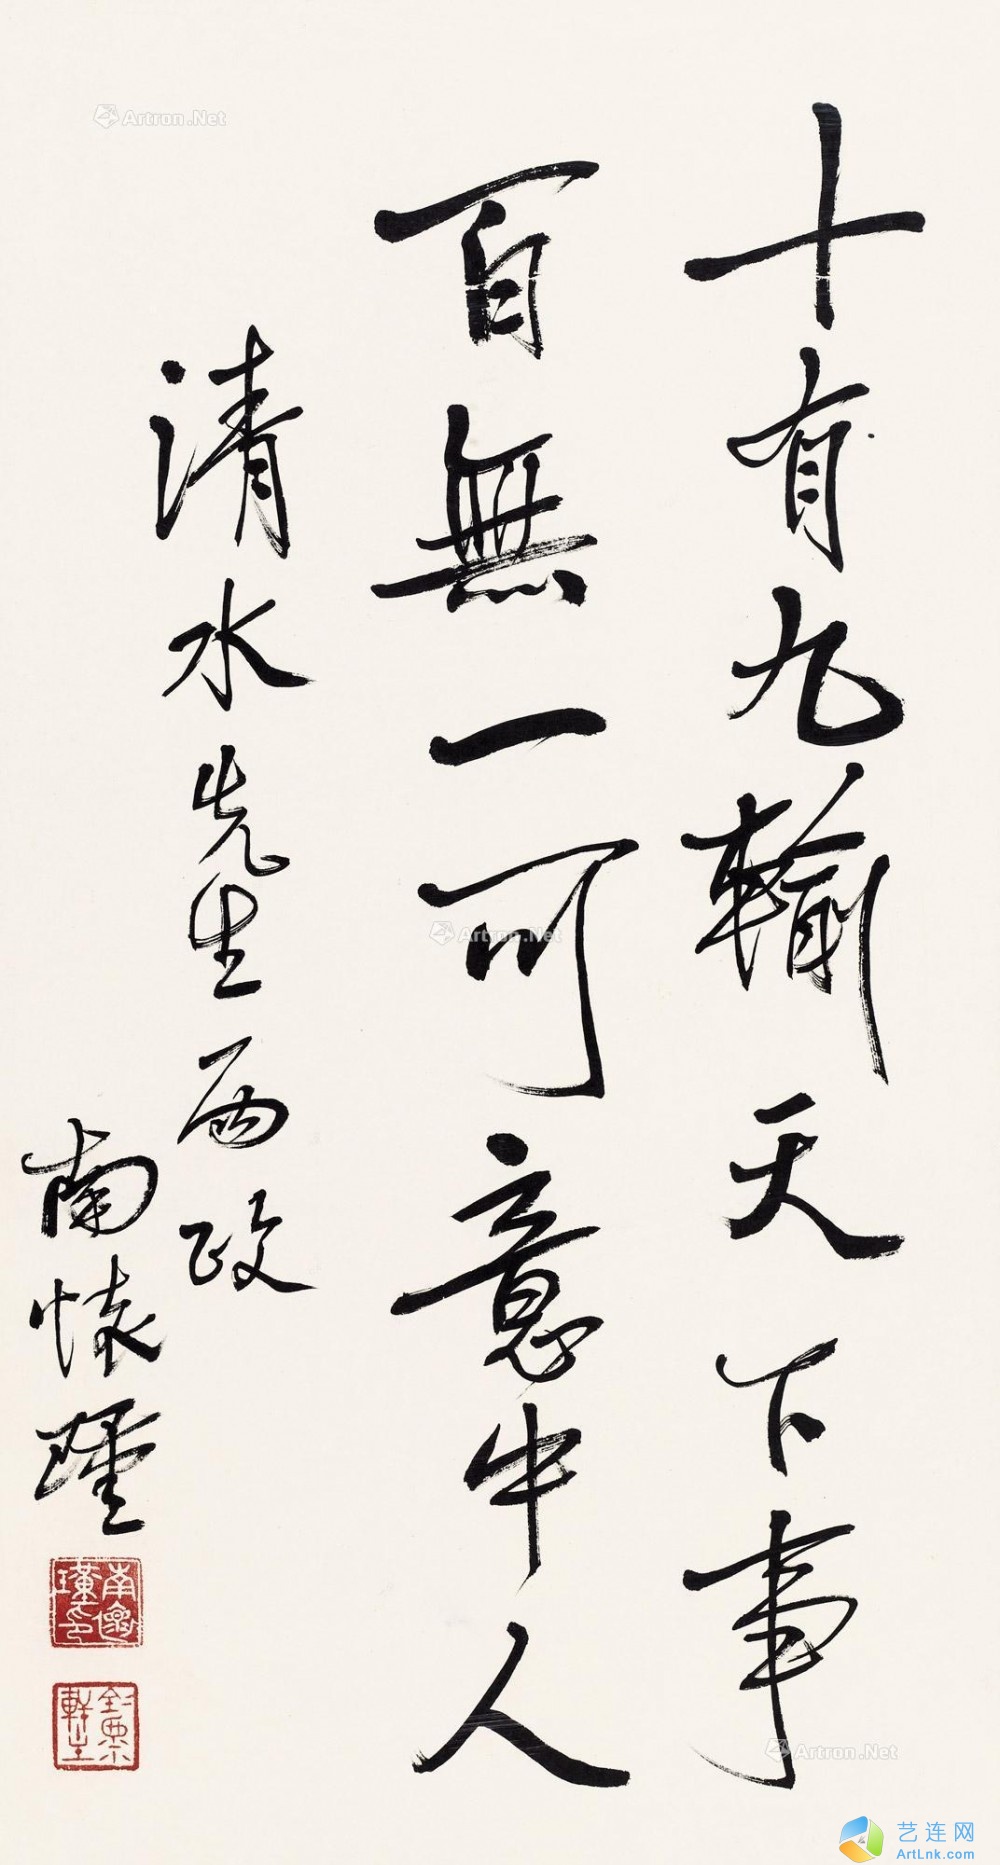 十有九輸天下事
百無一可意中人
清水先生兩政
南懷瑾
南懷瑾印
Artron.Net
Artron.Net
Artron.Net
艺连网
ArtLnk.com